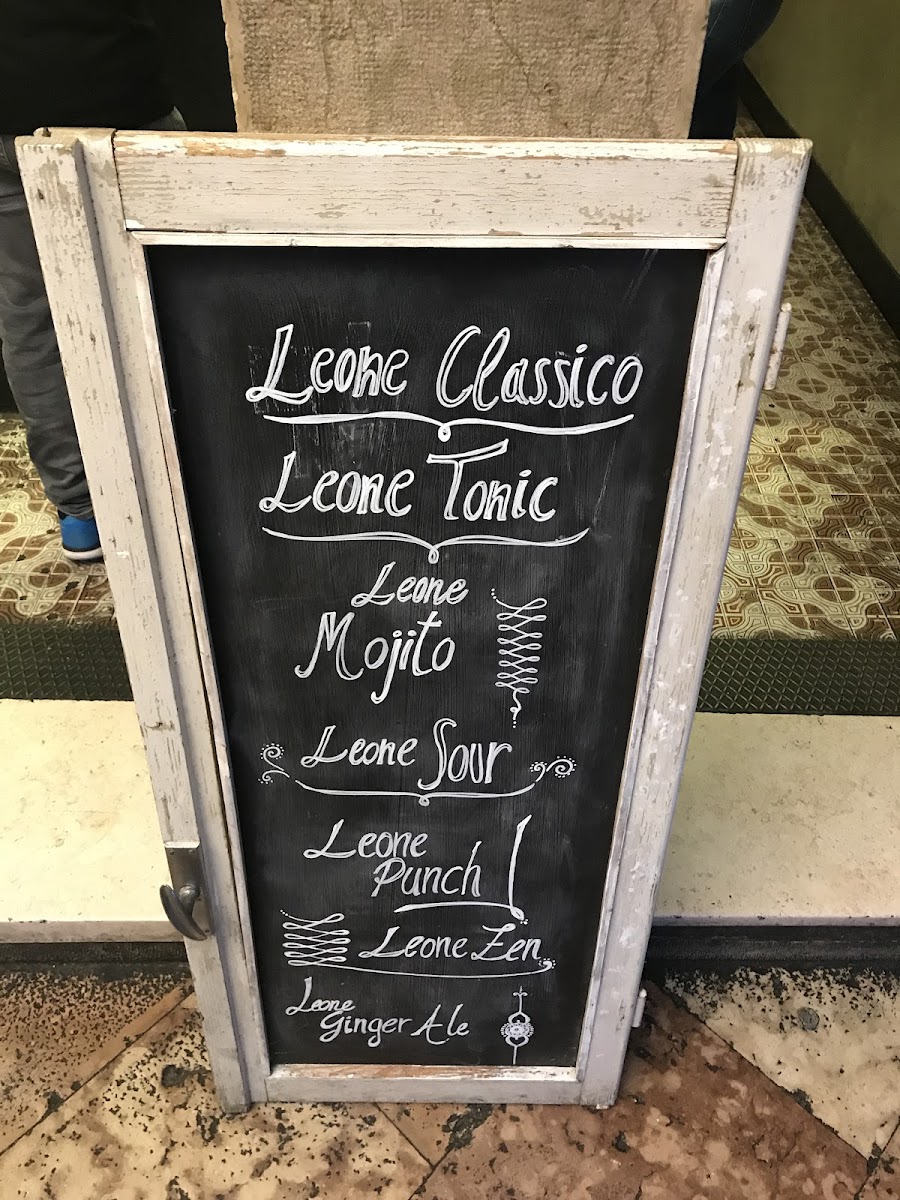 Leone Classico
Leone Tonic
Leone
Mojito
Leone Sour
Leone
Punch
Leone Zen
Leone
Ginger Ale